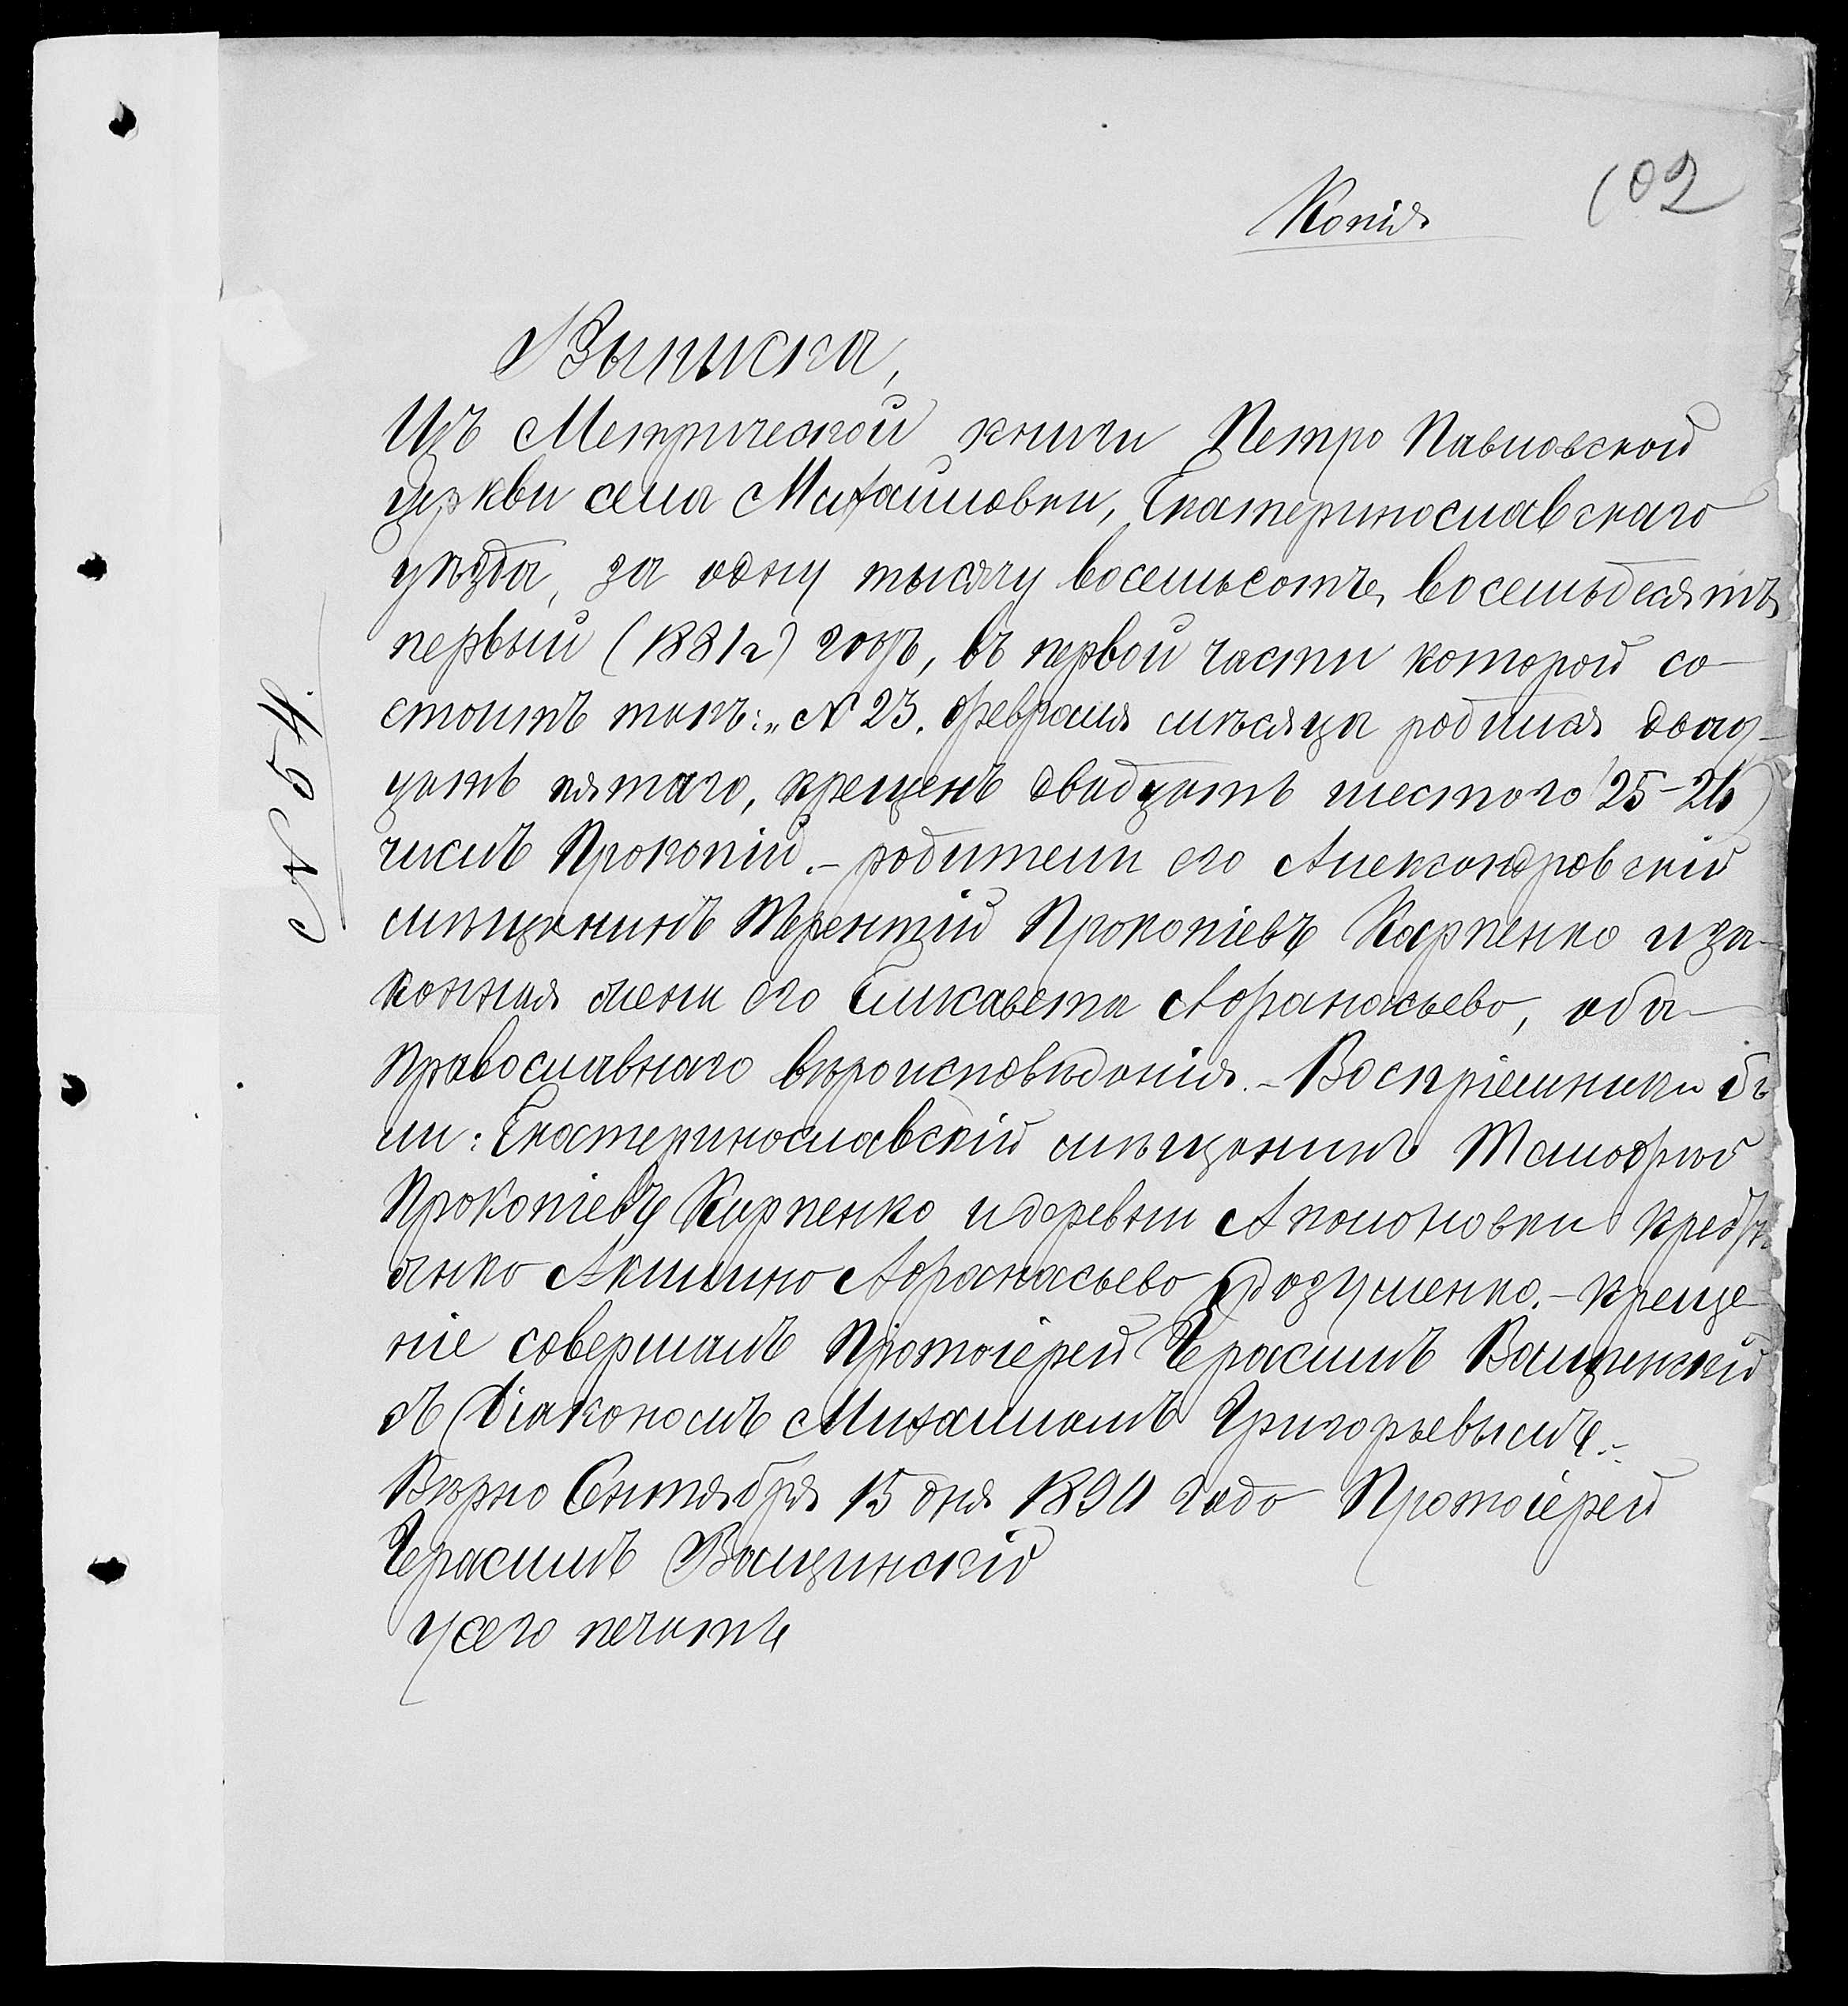 102
Копія
Выписка,
Изъ Метрической книги Петро Павловской
церкви села Михайловки, Екатеринославскаго
уѣзда, за одну тысячу восемьсотъ восемьдесятъ
первый (1881г) годъ, въ первой части которой со-
стоитъ такъ: „№ 23. Февраля мѣсяца родился двад-
цать пятаго, крещенъ двадцать шестого (25-26)
числъ Прокопій. - родители его Александровскій
мѣщанинъ Терентій Прокопіевъ Карпенко и за-
конная жена его Елисавета Афанасьева, оба
православнаго вѣроисповѣданія. - Воспріемники бы
ли: Екатеринославскій мѣщанинъ
Прокопіевъ Карпенко и деревни Аполоновки
Акилина Афанасьева - креще-
ніе совершалъ Протоіерей Герасимъ Ващинскій
съ Діакономъ Михаиломъ Григорьевымъ. -
Вѣрно Сентября 15 дня года Протоіерей
Герасимъ Ващинскій
у сего печать
№ 54.